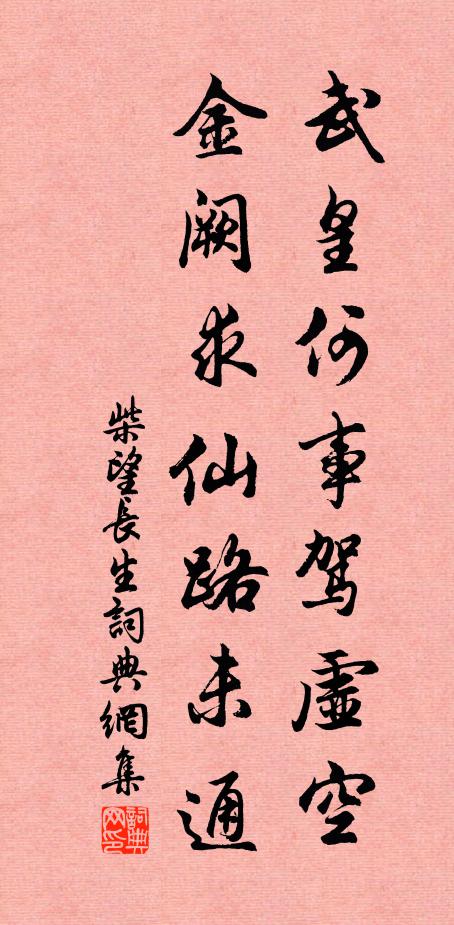 武皇何事駕虛空
金闕求仙路未通
柴望長生詞典網集
詞典网印